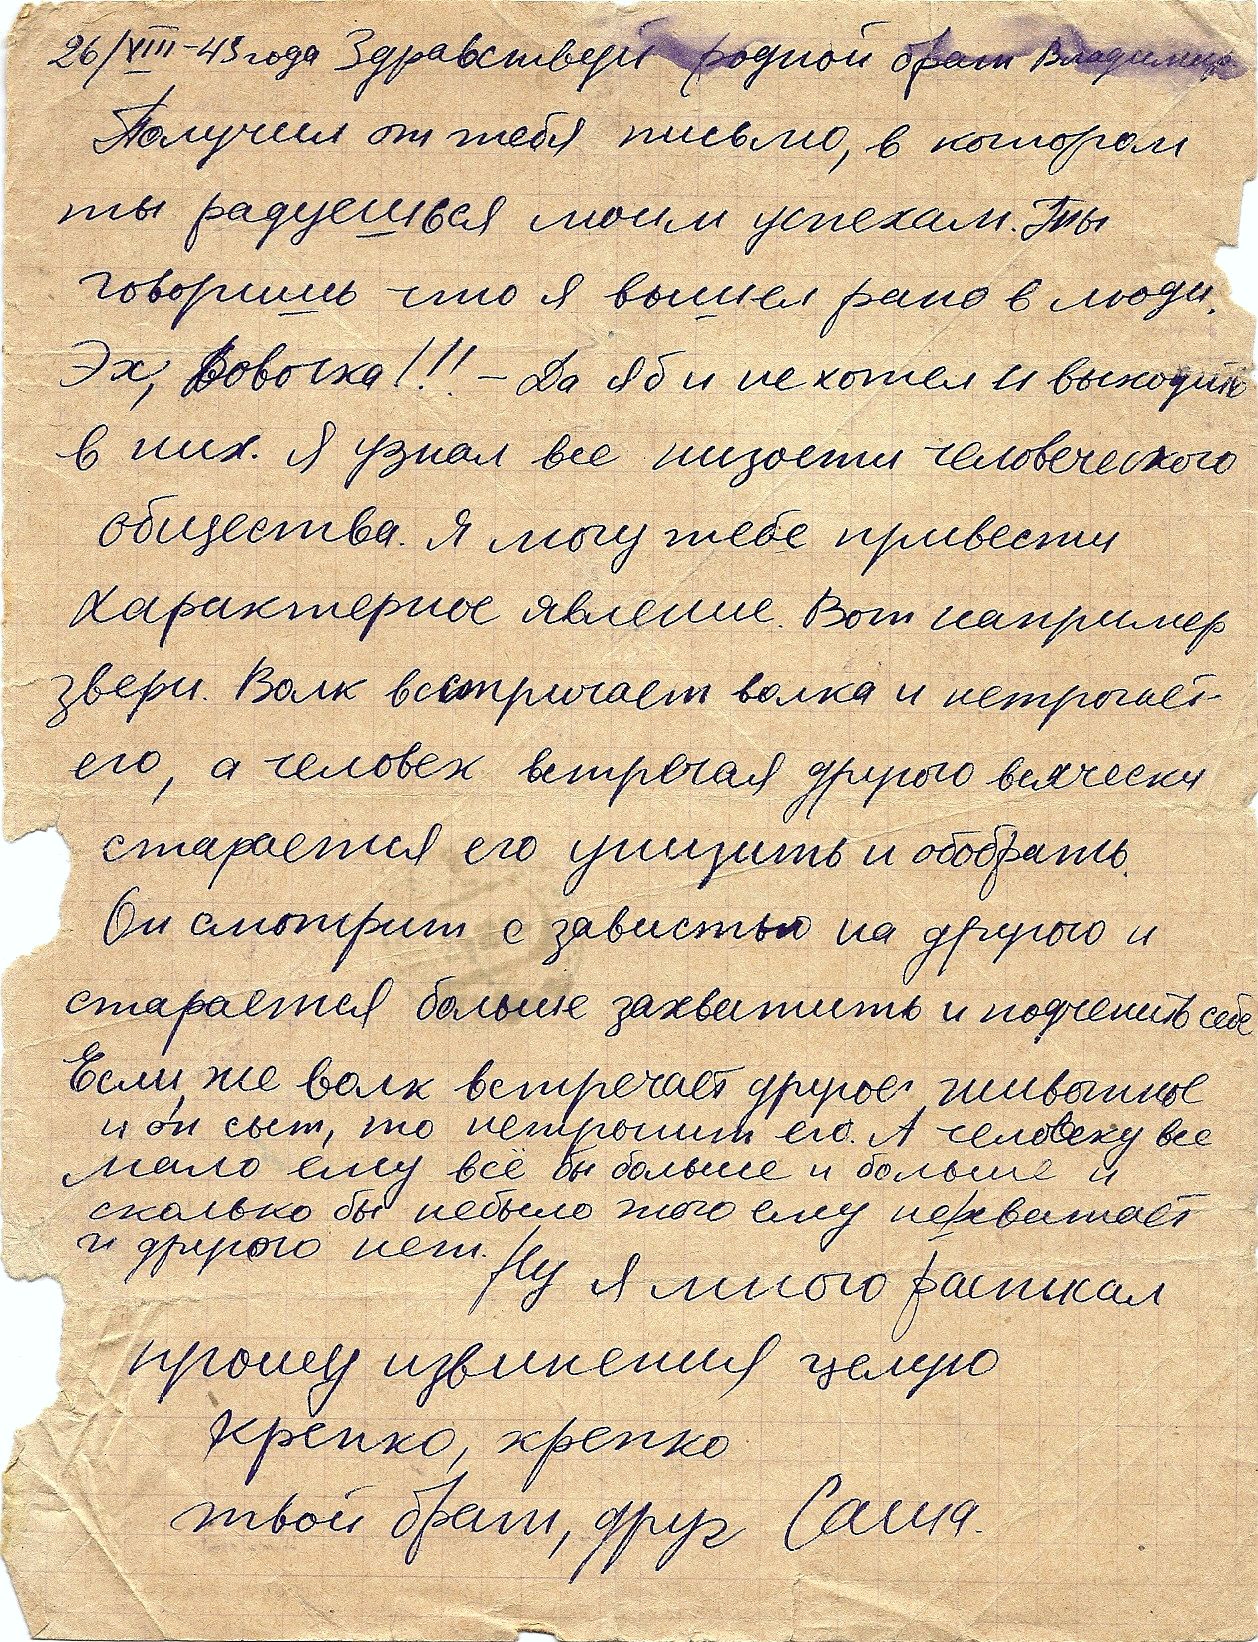 26/VIII-43 года Здравствей родной брат Владимир
Получил от тебя письмо, в котором
ты радуешься моим успехам. Ты
говоришь что я вышел рано в люди.
Эх, Вовочка!!! – Да я б и не хотел и выходить
в них. Я узнал все низости человеческого
общества. Я могу тебе привести
характерное явление. Вот например
звери. Волк встричает волка и нетрогает
его, а человек встречая другого всячески
старается его унизить и обобрать.
Он смотрит с завистью на другого и
старается больше захватить и подченить себе
Если же волк встречает другое животное
и он сыт, то нетронит его. А человеку все
мало ему всё бы больше и больше и
сколько бы небыло этого ему нехватает
и другого нет. Ну я много
прошу извинения целую
крепко, крепко
твой брат, друг Саша.